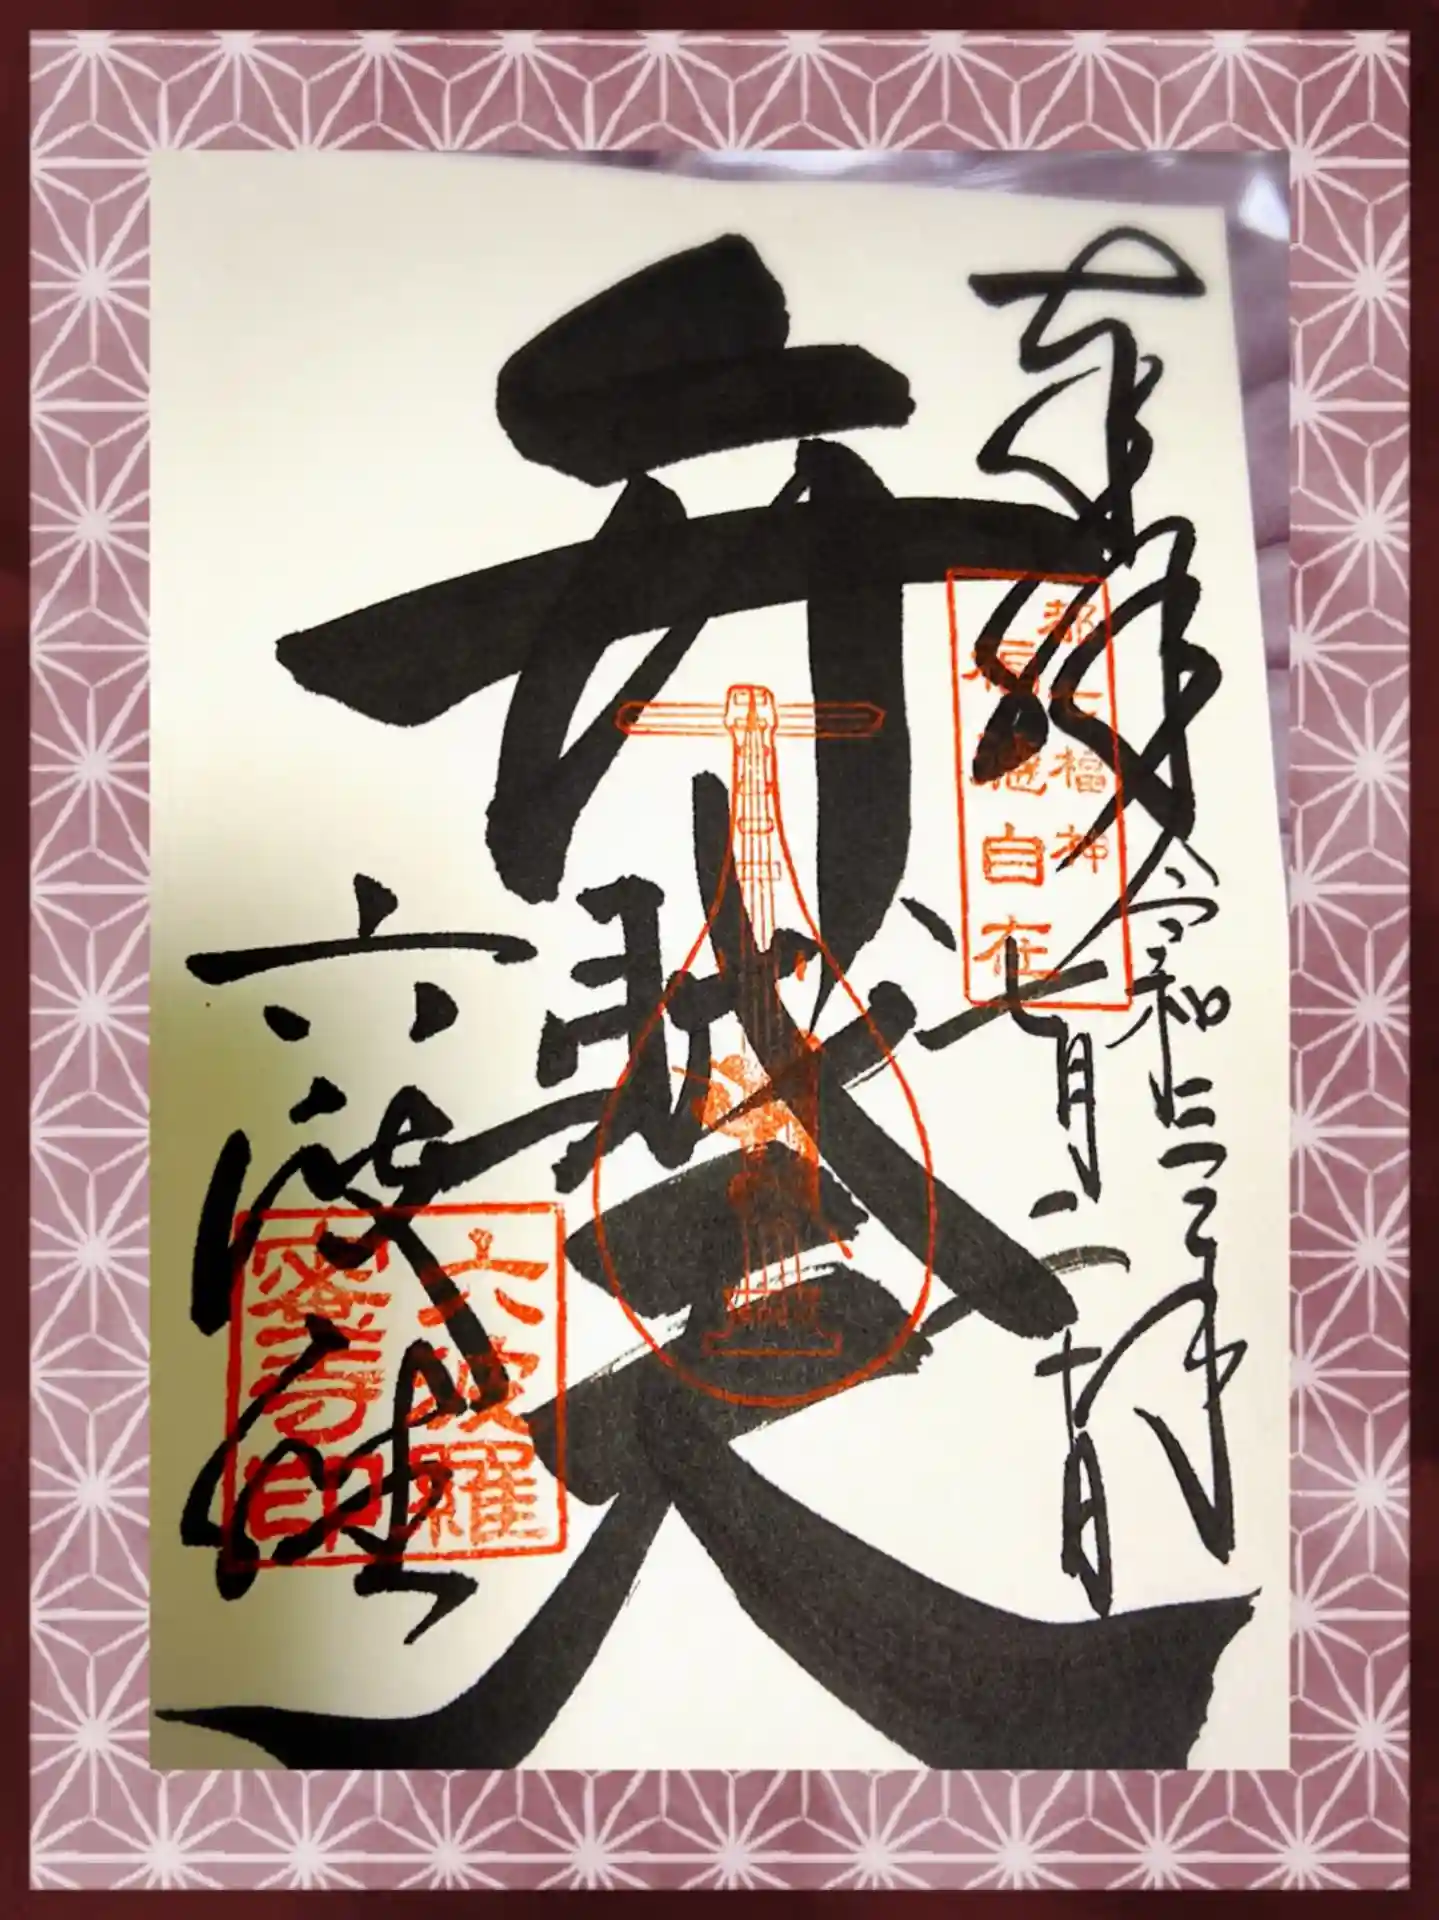 奉拝
令和三年
七月二十日
都七福神
福徳自在
弁財天
六波羅
六波羅
蜜寺印